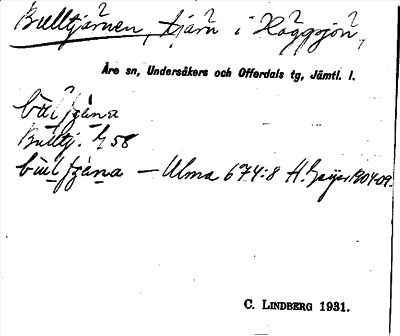 Bulltjärnen, tjärn i Häggsjön,
Åre sn, Undersåkers och Offerdals tg, Jämtl. l.
Bulltj. 58
– Ulma 674:8 H. Geijer 1904-09.
C. LINDBERG 1931.